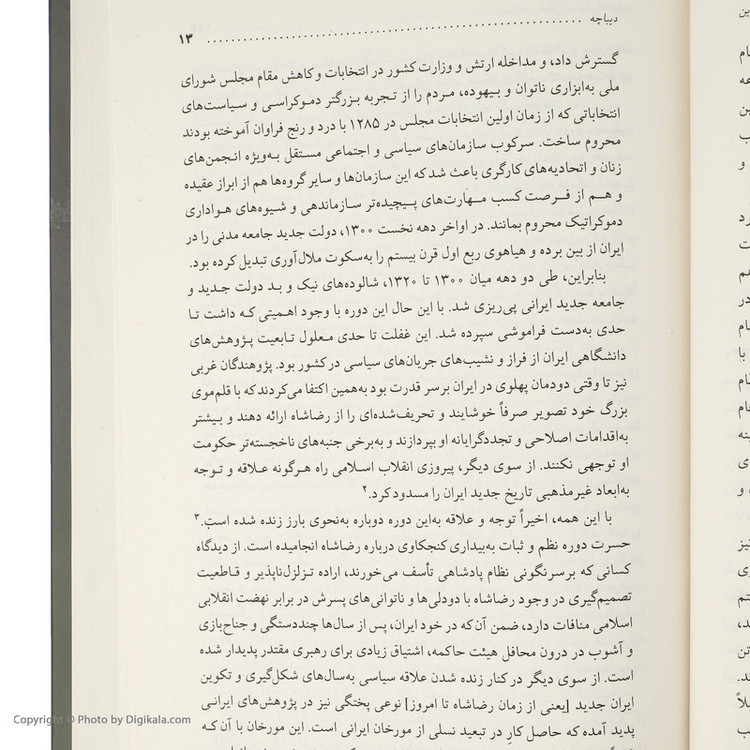 دیباچه ۱۳
گسترش داد، و مداخله ارتش و وزارت کشور در انتخابات و کاهش مقام مجلس شورای
ملی به‌ابزاری ناتوان و بیهوده، مردم را از تجربه بزرگتر دموکراسی و سیاست‌های
انتخاباتی که از زمان اولین انتخابات مجلس در ۱۲۸۵ با درد و رنج فراوان آموخته بودند
محروم ساخت. سرکوب سازمان‌های سیاسی و اجتماعی مستقل به‌ویژه انجمن‌های
زنان و اتحادیه‌های کارگری باعث شد که این سازمان‌ها و سایر گروه‌ها هم از ابراز عقیده
و هم از فرصت کسب مهارت‌های پیچیده‌تر سازماندهی و شیوه‌های هواداری
دموکراتیک محروم بمانند. در اواخر دهه نخست ۱۳۰۰، دولت جدید جامعه مدنی را در
ایران از بین برده و هیاهوی ربع اول قرن بیستم را به‌سکوت ملال‌آوری تبدیل کرده بود.
بنابراین، طی دو دهه میان ۱۳۰۰ تا ۱۳۲۰، شالوده‌های نیک و بد دولت جدید و
جامعه جدید ایرانی پی‌ریزی شد. با این حال این دوره با وجود اهمیتی که داشت تا
حدی به‌دست فراموشی سپرده شد. این غفلت تا حدی معلول تابعیت پژوهش‌های
دانشگاهی ایران از فراز و نشیب‌های جریان‌های سیاسی در کشور بود. پژوهندگان غربی
نیز تا وقتی دودمان پهلوی در ایران برسر قدرت بود به‌همین اکتفا می‌کردند که با قلم‌موی
بزرگ خود تصویر صرفاً خوشایند و تحریف‌شده‌ای را از رضاشاه ارائه دهند و بیشتر
به‌اقدامات اصلاحی و تجددگرایانه او بپردازند و به‌برخی جنبه‌های ناخجسته‌تر حکومت
او توجهی نکنند. از سوی دیگر، پیروزی انقلاب اسلامی راه هرگونه علاقه و توجه
به‌ابعاد غیرمذهبی تاریخ جدید ایران را مسدود کرد.۲
با این همه، اخیراً توجه و علاقه به‌این دوره دوباره به‌نحوی بارز زنده شده است.۳
حسرت دوره نظم و ثبات به‌بیداری کنجکاوی درباره رضاشاه انجامیده است. از دیدگاه
کسانی که برسرنگونی نظام پادشاهی تأسف می‌خورند، اراده تزلزل‌ناپذیر و قاطعیت
تصمیم‌گیری در وجود رضاشاه با دودلی‌ها و ناتوانی‌های پسرش در برابر نهضت انقلابی
اسلامی منافات دارد، ضمن آن‌که در خود ایران، پس از سال‌ها چنددستگی و جناح‌بازی
و آشوب در درون محافل هیئت حاکمه، اشتیاق زیادی برای رهبری مقتدر پدیدار شده
است. از سوی دیگر در کنار زنده شدن علاقه سیاسی به‌سال‌های شکل‌گیری و تکوین
ایران جدید [یعنی از زمان رضاشاه تا امروز] نوعی پختگی نیز در پژوهش‌های ایرانی
پدید آمده که حاصل کارِ در تبعید نسلی از مورخان ایرانی است. این مورخان با آن که
Copyright © Photo by Digikala.com